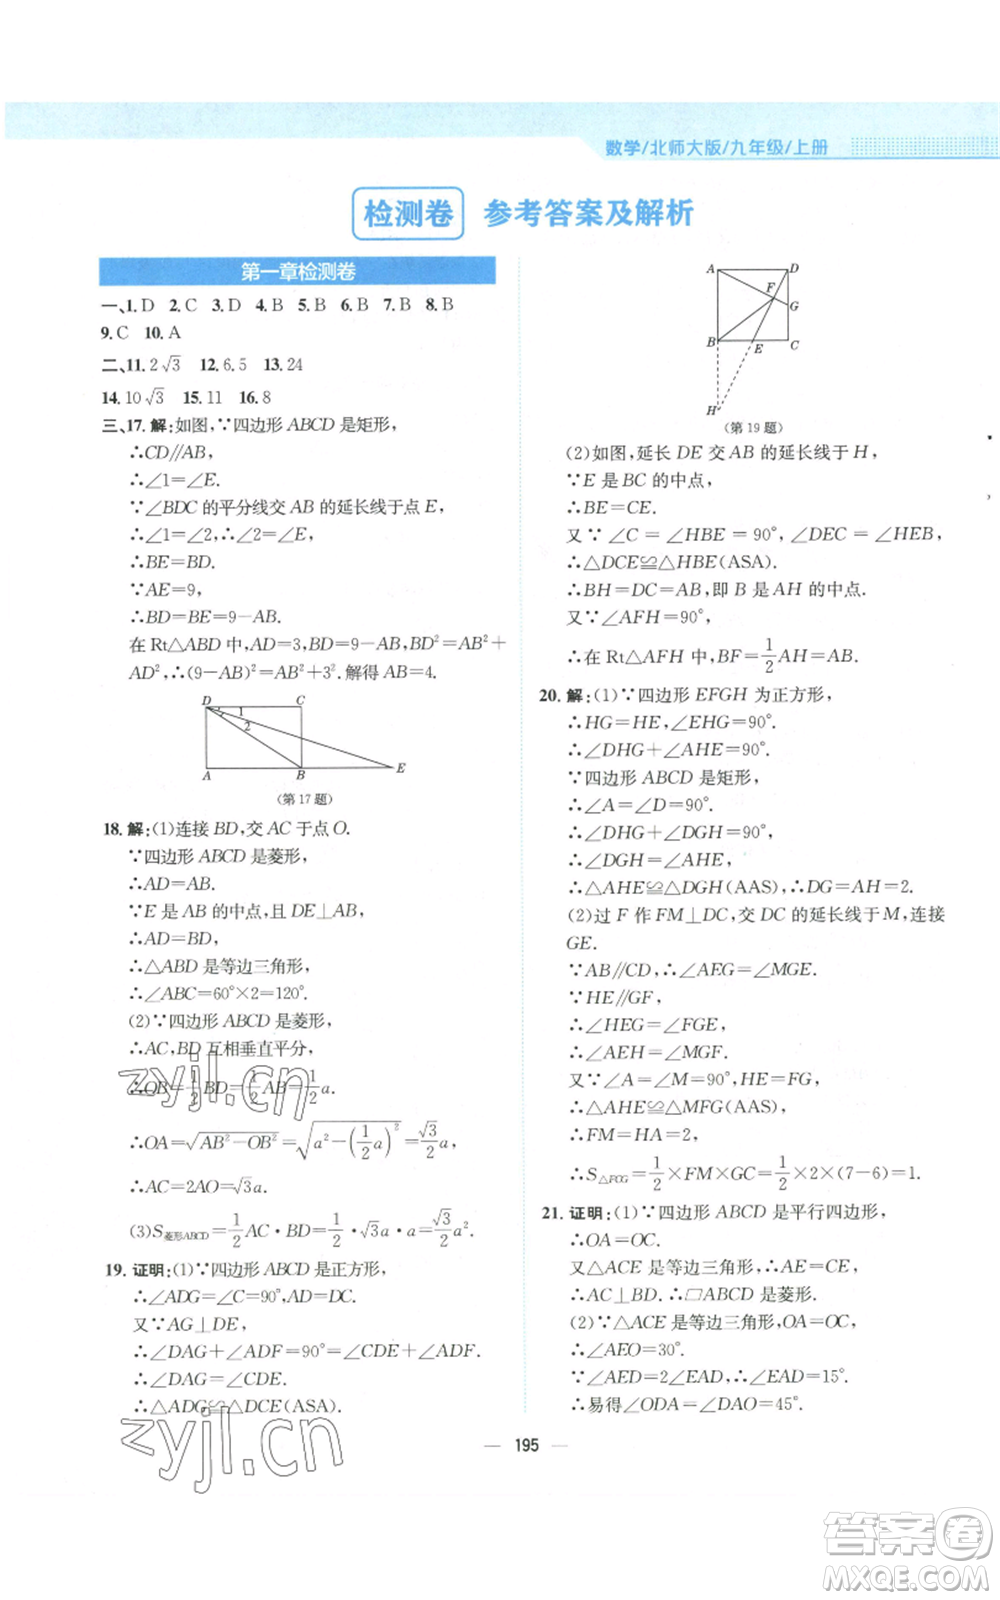 数学/北师大版/九年级/上册
检测卷 参考答案及解析
第一章检测卷
一、1. D 2. C 3. D 4. B 5. B 6. B 7. B 8. B
9. C 10. A
二、11. 2√3 12. 6.5 13. 24
14. 10√3 15. 11 16. 8
三、17. 解:如图,∵四边形 ABCD 是矩形,
∴CD∥AB,
∴∠1=∠E.
∵∠BDC 的平分线交 AB 的延长线于点 E,
∴∠1=∠2,∴∠2=∠E,
∴BE=BD.
∵AE=9,
∴BD=BE=9-AB.
在 Rt△ABD 中,AD=3,BD=9-AB,BD²=AB²+
AD²,∴(9-AB)²=AB²+3². 解得 AB=4.
D C
1
2
A B E
(第 17 题)
18. 解:(1)连接 BD,交 AC 于点 O.
∵四边形 ABCD 是菱形,
∴AD=AB.
∵E 是 AB 的中点,且 DE⊥AB,
∴AD=BD,
∴△ABD 是等边三角形,
∴∠ABC=60°×2=120°.
(2)∵四边形 ABCD 是菱形,
∴AC,BD 互相垂直平分,
∴OB=1/2 BD=1/2 AB=1/2 a.
∴OA=√(AB²-OB²)=√(a²-(1/2 a)²)=√3/2 a,
∴AC=2AO=√3a.
(3)S菱形ABCD=1/2 AC·BD=1/2·√3a·a=√3/2 a².
19. 证明:(1)∵四边形 ABCD 是正方形,
∴∠ADG=∠C=90°,AD=DC.
又∵AG⊥DE,
∴∠DAG+∠ADF=90°=∠CDE+∠ADF.
∴∠DAG=∠CDE.
∴△ADG≌△DCE(ASA).
A D
F
G
B E C
H
(第 19 题)
(2)如图,延长 DE 交 AB 的延长线于 H,
∵E 是 BC 的中点,
∴BE=CE.
又∵∠C=∠HBE=90°,∠DEC=∠HEB,
∴△DCE≌△HBE(ASA).
∴BH=DC=AB,即 B 是 AH 的中点.
又∵∠AFH=90°,
∴在 Rt△AFH 中,BF=1/2 AH=AB.
20. 解:(1)∵四边形 EFGH 为正方形,
∴HG=HE,∠EHG=90°.
∴∠DHG+∠AHE=90°.
∵四边形 ABCD 是矩形,
∴∠A=∠D=90°.
∴∠DHG+∠DGH=90°.
∴∠DGH=∠AHE,
∴△AHE≌△DGH(AAS),∴DG=AH=2.
(2)过 F 作 FM⊥DC,交 DC 的延长线于 M,连接
GE.
∵AB∥CD,∴∠AEG=∠MGE.
∵HE∥GF,
∴∠HEG=∠FGE,
∴∠AEH=∠MGF.
又∵∠A=∠M=90°,HE=FG,
∴△AHE≌△MFG(AAS),
∴FM=HA=2,
∴S△FCG=1/2×FM×GC=1/2×2×(7-6)=1.
21. 证明:(1)∵四边形 ABCD 是平行四边形,
∴OA=OC.
又△ACE 是等边三角形,∴AE=CE.
∴AC⊥BD. ∴▱ABCD 是菱形.
(2)∵△ACE 是等边三角形,OA=OC,
∴∠AEO=30°.
∵∠AED=2∠EAD,∴∠EAD=15°.
∴易得∠ODA=∠DAO=45°.
195
zyjl.cn
zyjl.cn
答案卷
MXQE.COM